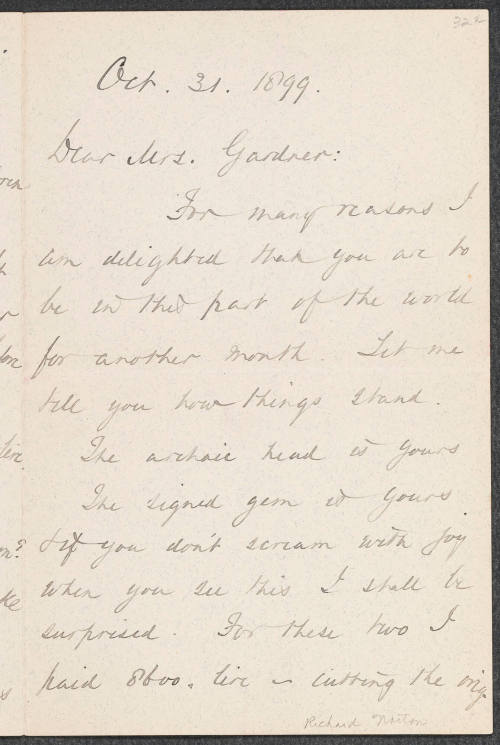 322
Oct. 31. 1899.
Dear Mrs. Gardner:
For many reasons I
am delighted that you are to
be in this part of the world
for another month. Let me
tell you how things stand.
The archaic head is yours
The signed gem is yours
& if you don't scream with joy
when you see this I shall be
surprised. For these two I
paid 8600. lire — cutting the orig-
Richard Norton